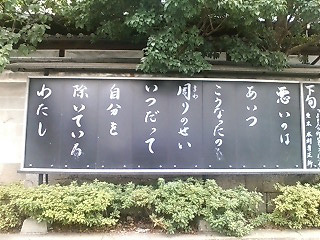 下旬
悪いのは
あいつ
こうなたのも
周りのせい
まわ
いつだって
自分を
除いている
わたし